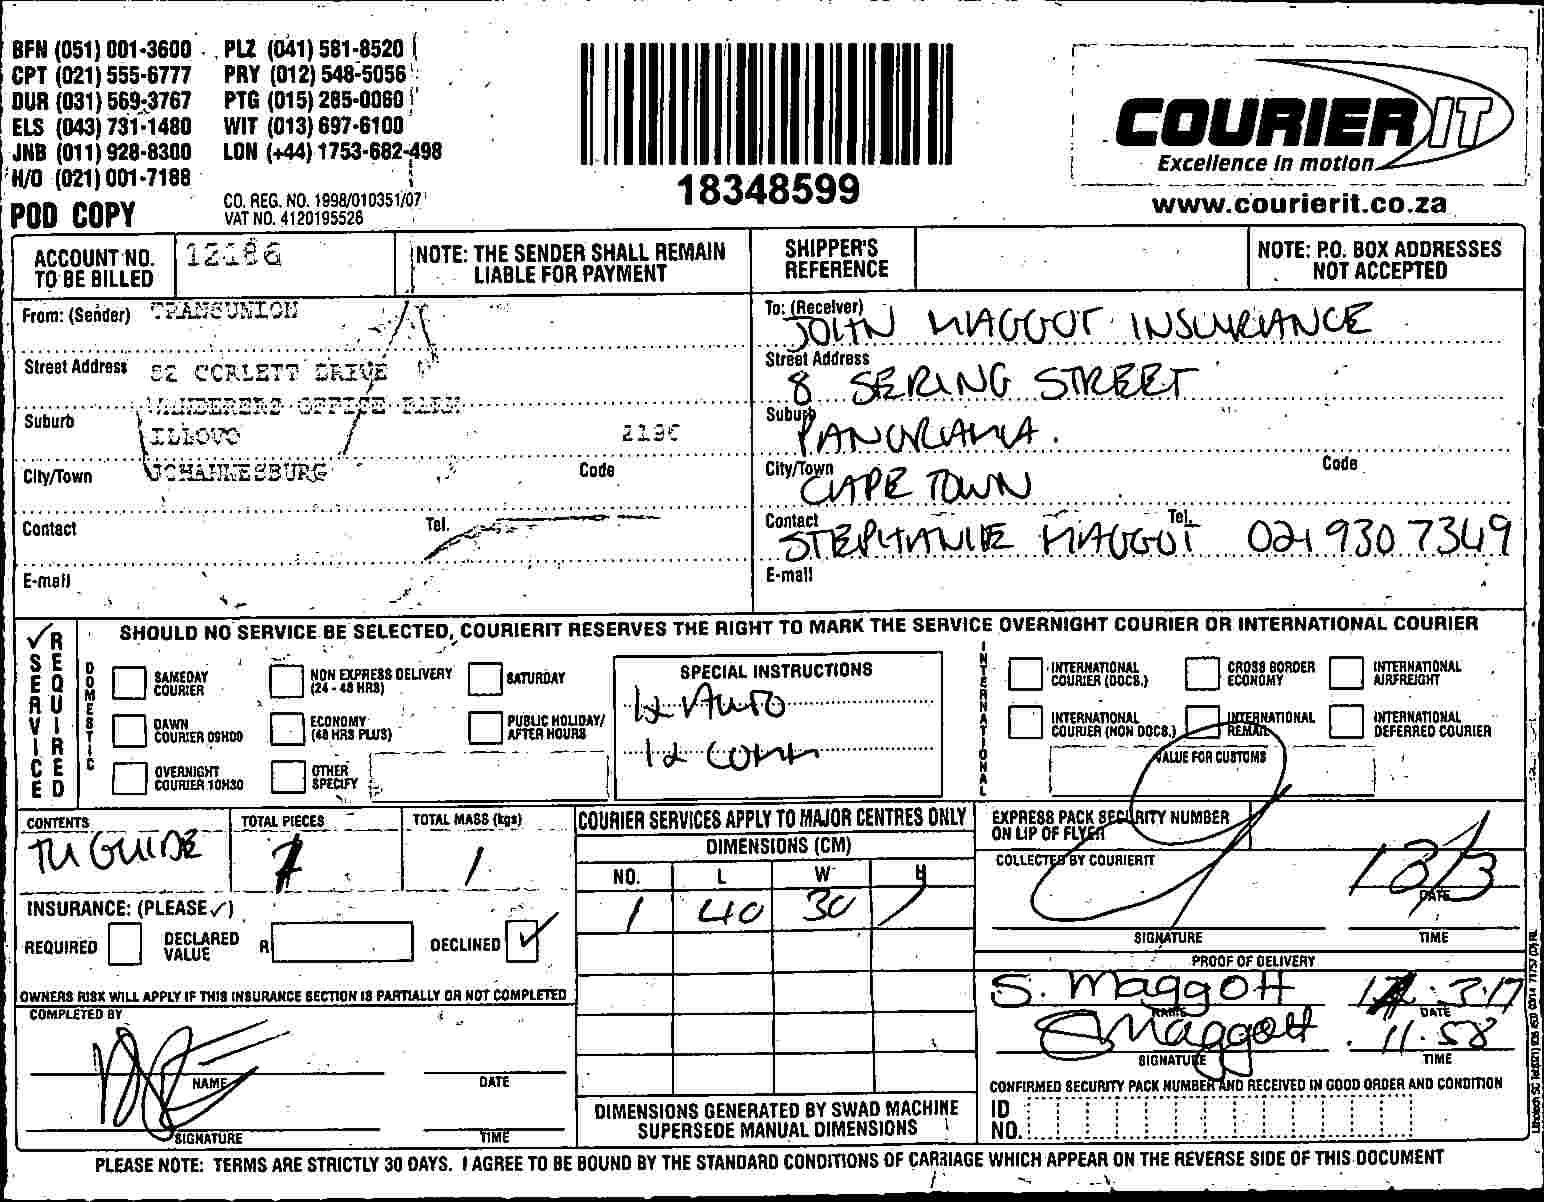 BFN (051) 001-3600 PLZ (041) 581-8520
CPT (021) 555-6777 PRY (012) 548-5056
DUR (031) 569-3767 PTG (015) 285-0060
ELS (043) 731-1480 WIT (013) 697-6100
JNB (011) 928-8300 LON (+44) 1753-682-498
H/O (021) 001-7188
POD COPY
CO. REG. NO. 1998/010351/07
VAT NO. 4120195526
18348599
COURIER IT
Excellence in motion
www.courierit.co.za
ACCOUNT NO. TO BE BILLED 12186
NOTE: THE SENDER SHALL REMAIN LIABLE FOR PAYMENT
SHIPPER'S REFERENCE
NOTE: P.O. BOX ADDRESSES NOT ACCEPTED
From: (Sender) TRANSUNION
Street Address 52 CORLETT DRIVE
WANDERERS OFFICE PARK
Suburb ILLOVO 2196
City/Town JOHANNESBURG Code
Contact Tel.
E-mail
To: (Receiver) JOHN MAGGOT INSURANCE
Street Address 8 SERING STREET
Suburb PANORAMA.
City/Town CAPE TOWN Code
Contact STEPHANIE MAGGOT Tel. 021 930 7349
E-mail
✓ SERVICE REQUIRED
SHOULD NO SERVICE BE SELECTED, COURIERIT RESERVES THE RIGHT TO MARK THE SERVICE OVERNIGHT COURIER OR INTERNATIONAL COURIER
DOMESTIC
SAMEDAY COURIER
NON EXPRESS DELIVERY (24 - 48 HRS)
SATURDAY
DAWN COURIER 09H00
ECONOMY (48 HRS PLUS)
PUBLIC HOLIDAY/ AFTER HOURS
OVERNIGHT COURIER 10H30
OTHER SPECIFY
SPECIAL INSTRUCTIONS
1x Auto
1x Comm
INTERNATIONAL
INTERNATIONAL COURIER (DOCS.)
CROSS BORDER ECONOMY
INTERNATIONAL AIRFREIGHT
INTERNATIONAL COURIER (NON DOCS.)
INTERNATIONAL REMAIL
INTERNATIONAL DEFERRED COURIER
VALUE FOR CUSTOMS
CONTENTS TU GUIDE
TOTAL PIECES 1
TOTAL MASS (kgs) 1
INSURANCE: (PLEASE ✓)
REQUIRED
DECLARED VALUE R
DECLINED ✓
OWNERS RISK WILL APPLY IF THIS INSURANCE SECTION IS PARTIALLY OR NOT COMPLETED
COMPLETED BY
NAME DATE
SIGNATURE TIME
COURIER SERVICES APPLY TO MAJOR CENTRES ONLY
DIMENSIONS (CM)
NO. L W H
1 40 30
DIMENSIONS GENERATED BY SWAD MACHINE SUPERSEDE MANUAL DIMENSIONS
EXPRESS PACK SECURITY NUMBER ON LIP OF FLYER
COLLECTED BY COURIERIT
13/3
DATE
SIGNATURE TIME
PROOF OF DELIVERY
S. Maggott
NAME DATE
SMaggott 11.58
SIGNATURE TIME
CONFIRMED SECURITY PACK NUMBER AND RECEIVED IN GOOD ORDER AND CONDITION
ID NO.
PLEASE NOTE: TERMS ARE STRICTLY 30 DAYS. I AGREE TO BE BOUND BY THE STANDARD CONDITIONS OF CARRIAGE WHICH APPEAR ON THE REVERSE SIDE OF THIS DOCUMENT